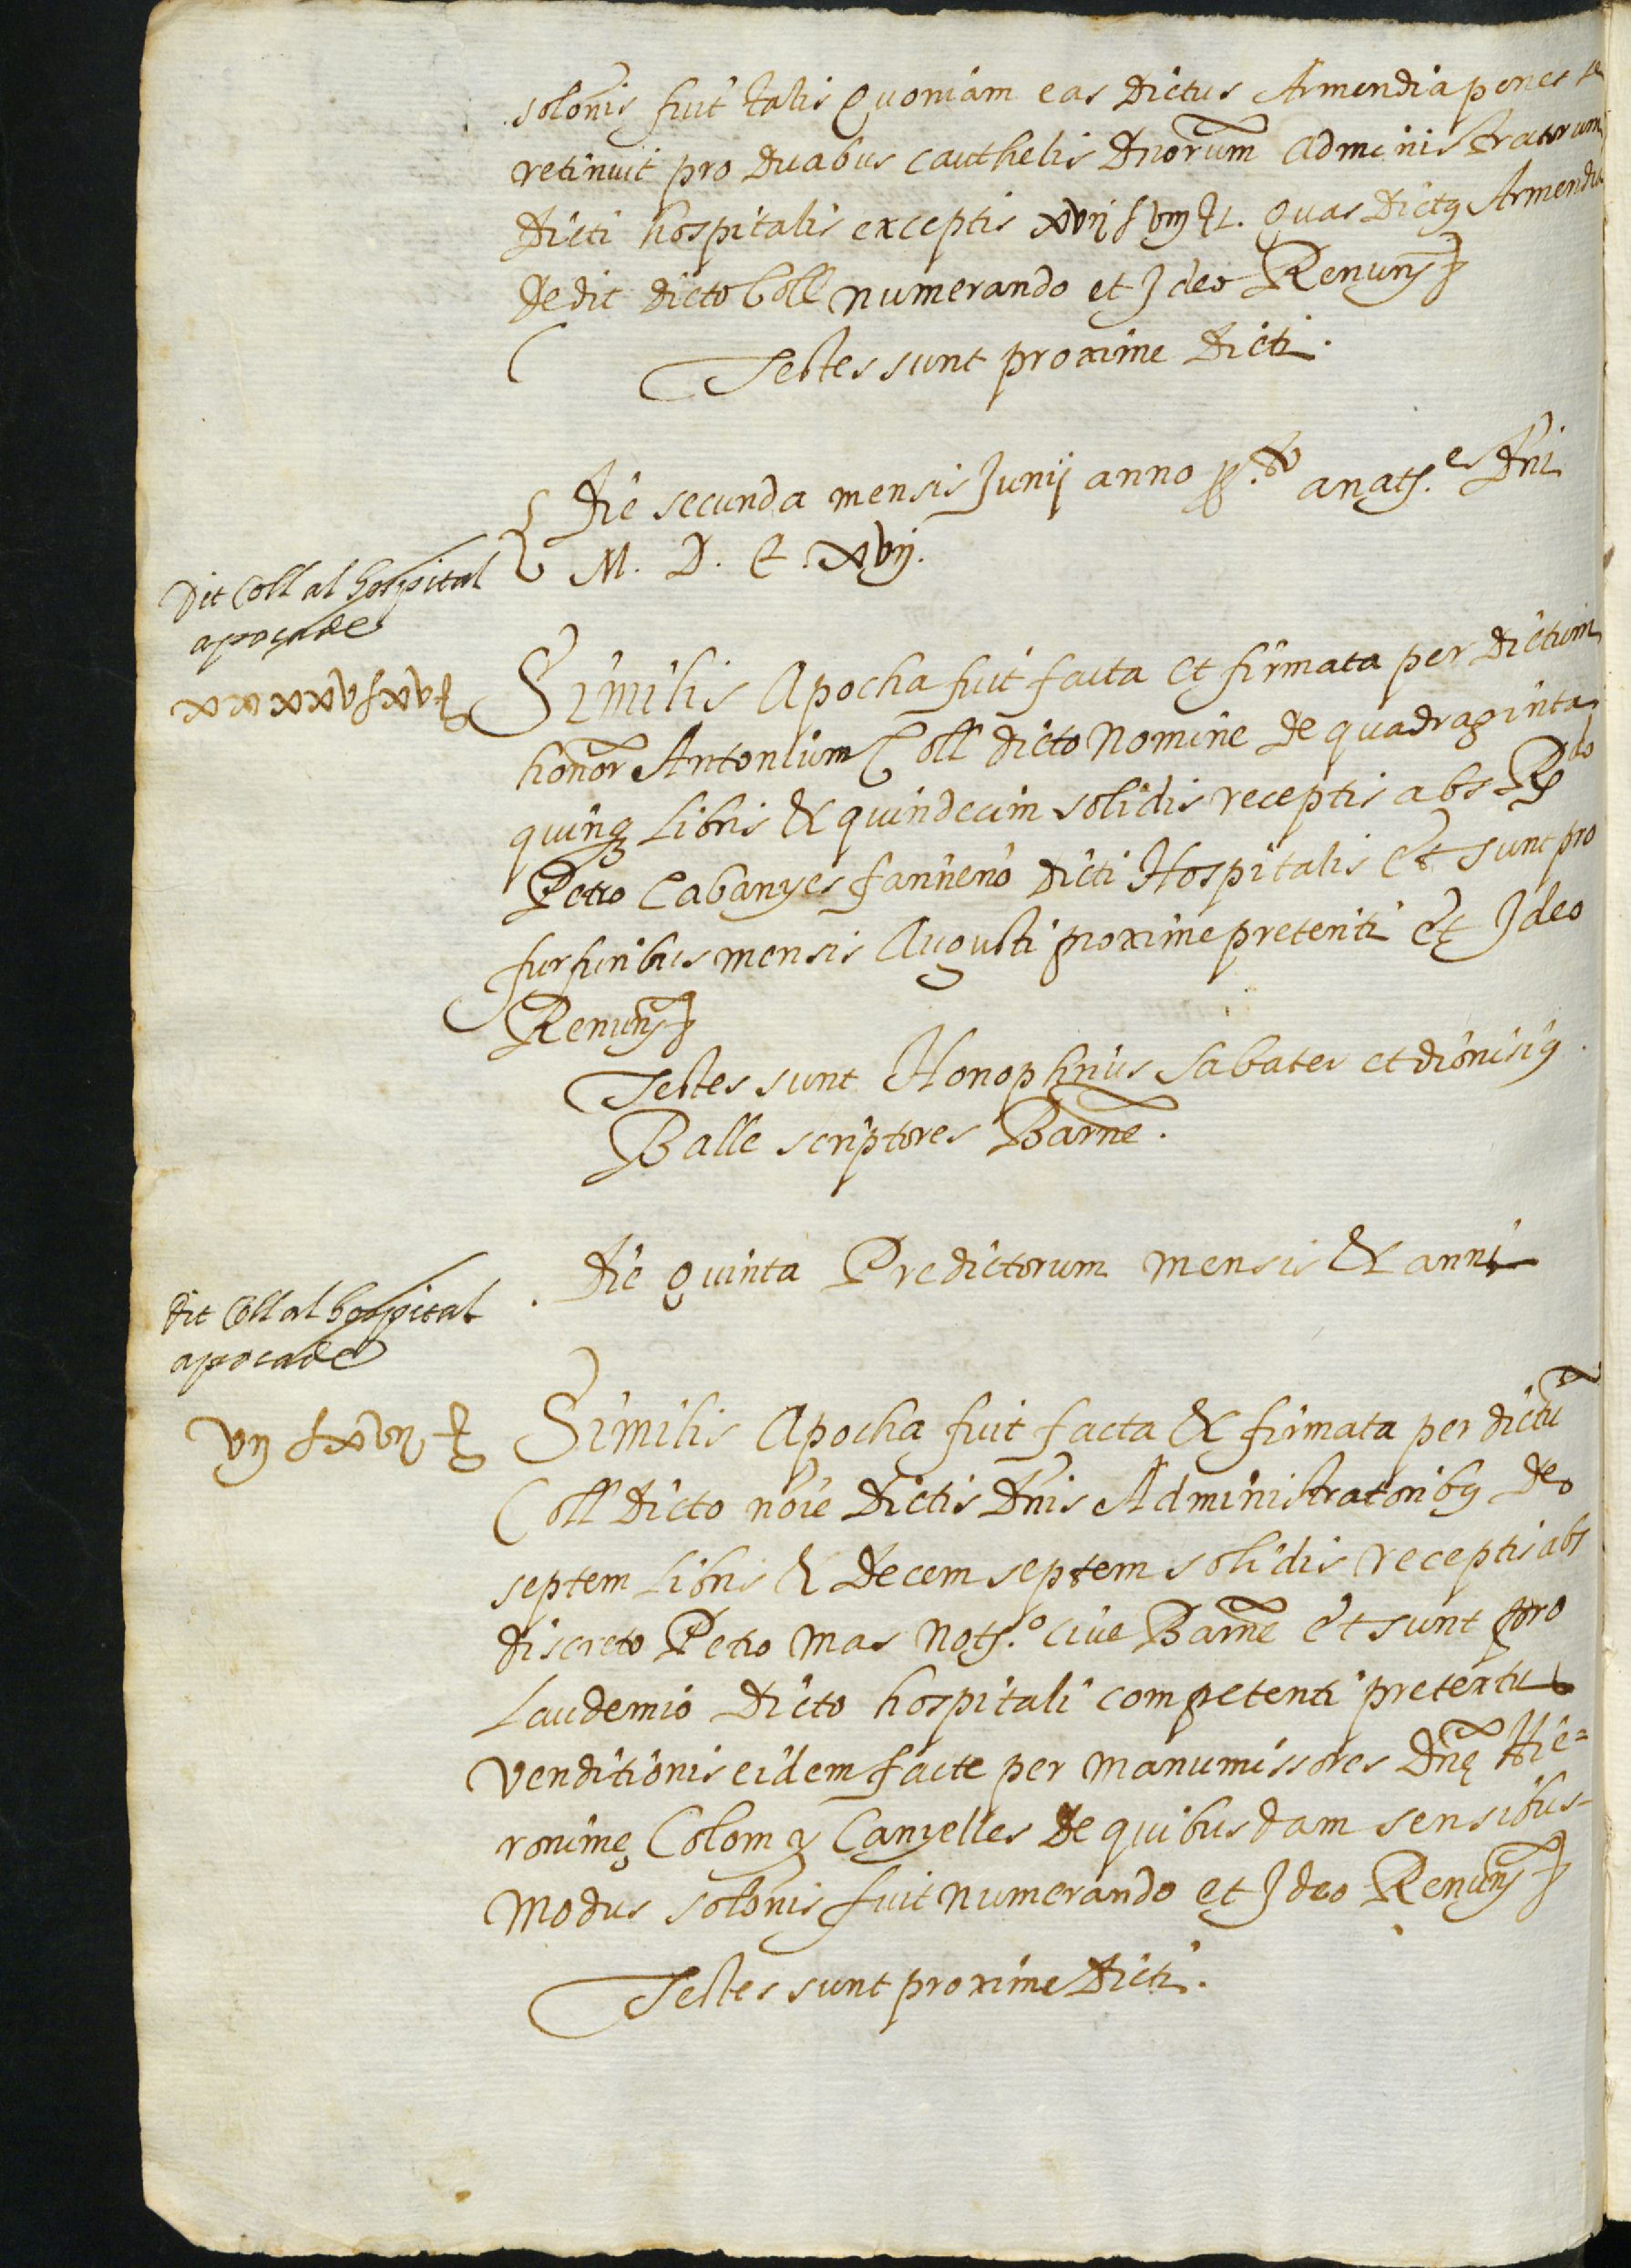 solonis fuit talis Quoniam eas Dictus Armendia penes se
retinuit pro Duabus cauthelis Dnorum Administratorum
Dicti hospitalis exceptis xvij s viij Quas Dictus Armendia
Dedit dicto Coll numerando et Ideo Renuns
Testes sunt proxime Dicti.
Die secunda mensis Junij anno pº. a nats. Dni
M. D. C. xvij.
Dit Coll al hospital
apoca de
Similis Apocha fuit facta et firmata per Dictum
honor Antonium Coll dicto Nomine De quadraginta
quinq Libris & quindecim solidis receptis abs
Petro Cabanyes fanneno Dicti Hospitalis Et sunt pro
furfuribus mensis Augusti proxime preteriti Et Ideo
Renuns
Testes sunt Honophrius Sabater et dionisius
Balle scriptores Barne.
Die Quinta Predictorum mensis & anni
Dit Coll al hospital
apoca de
vij s xvij
Similis Apocha fuit facta & firmata per dictu
Coll Dicto noie Dictis Dnis Administratoribus De
septem Libris & Decem septem solidis receptis abs
Discreto Petro Mas Nots.º cive Barne Et sunt pro
Laudemio Dicto hospitali competenti pretextu
venditionis eidem facte per manumissores Dnę Hie=
ronimę Colom y Canyelles De quibusdam sensibus
Modus solonis fuit numerando et Ideo Renuns
Testes sunt proxime Dicti.